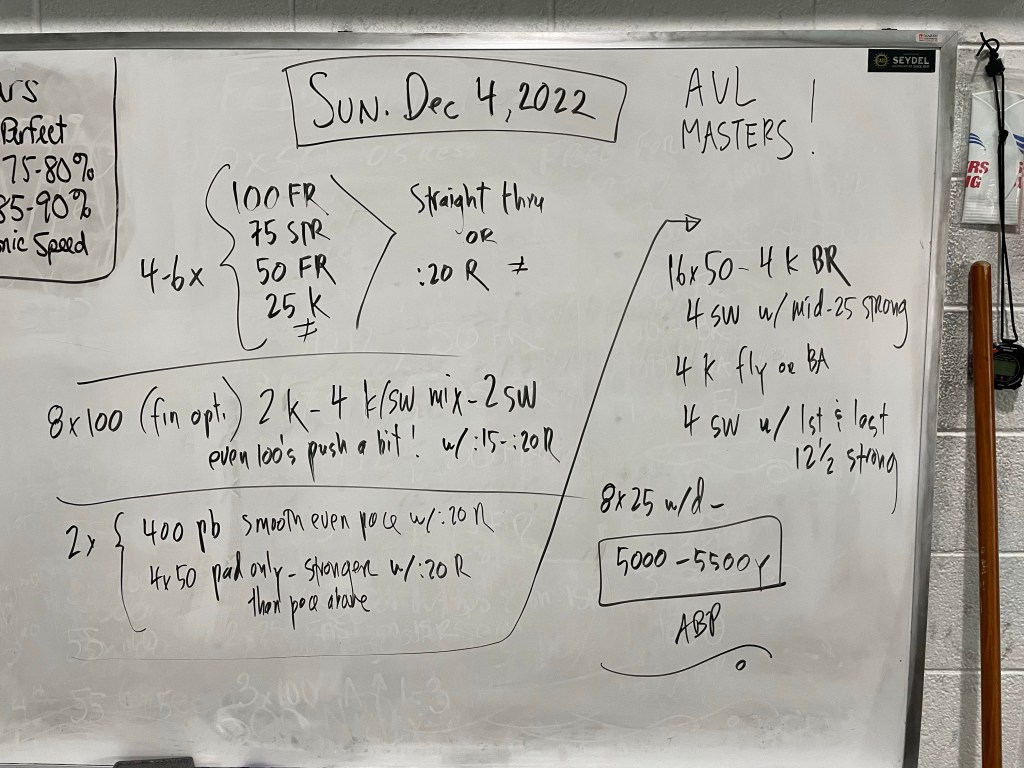 Perfect
75-80%
85-90%
Speed
SUN. Dec 4, 2022
AVL
MASTERS!
SEYDEL
4-6x
100 FR
75 STR
50 FR
25 K
≠
Straight thru
OR
:20 R ≠
8x100 (fin opt.) 2 k - 4 k/sw mix - 2 sw
even 100's push a bit! w/:15-:20R
2x
400 pb smooth even pace w/:20 R
4x50 pad only - stronger w/:20 R
than pace above
16x50 - 4 k BR
4 sw w/ mid-25 strong
4 k fly or BA
4 sw w/ 1st & last
12½ strong
8x25 w/d -
5000 - 5500y
ABP